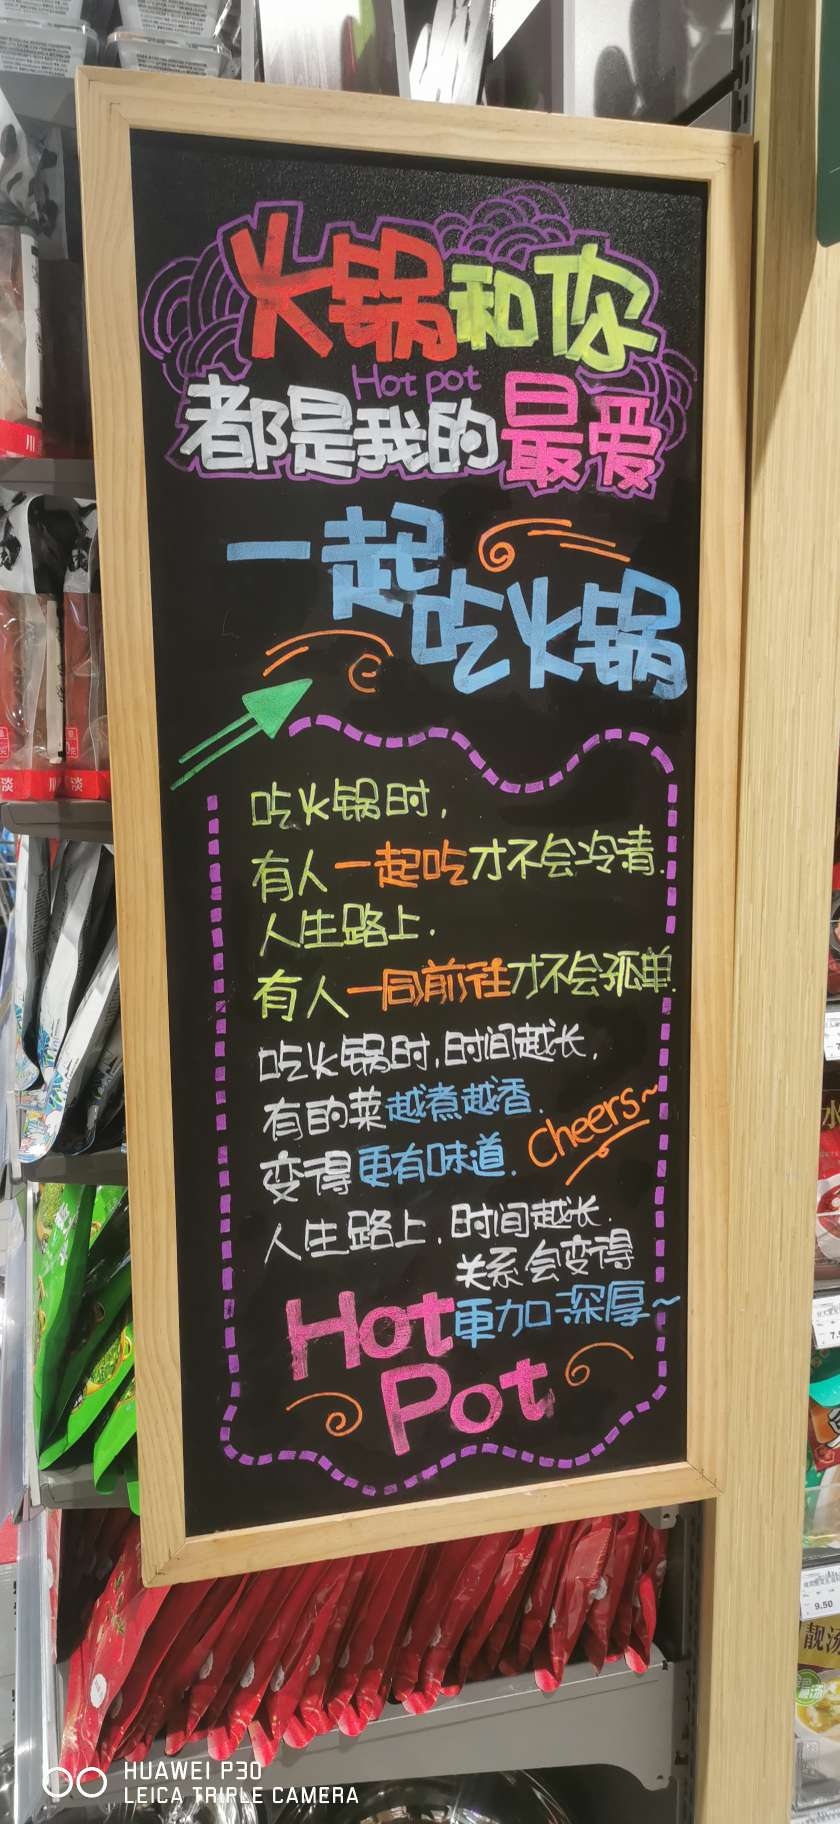 火锅和你
Hot pot
都是我的最爱
一起
吃火锅
吃火锅时,
有人一起吃才不会冷清.
人生路上.
有人一同前往才不会孤单.
吃火锅时,时间越长,
有的菜越煮越香.
变得更有味道.
Cheers~
人生路上.时间越长.
关系会变得
更加深厚~
Hot
Pot
9.50
靓汤
HUAWEI P30
LEICA TRIPLE CAMERA